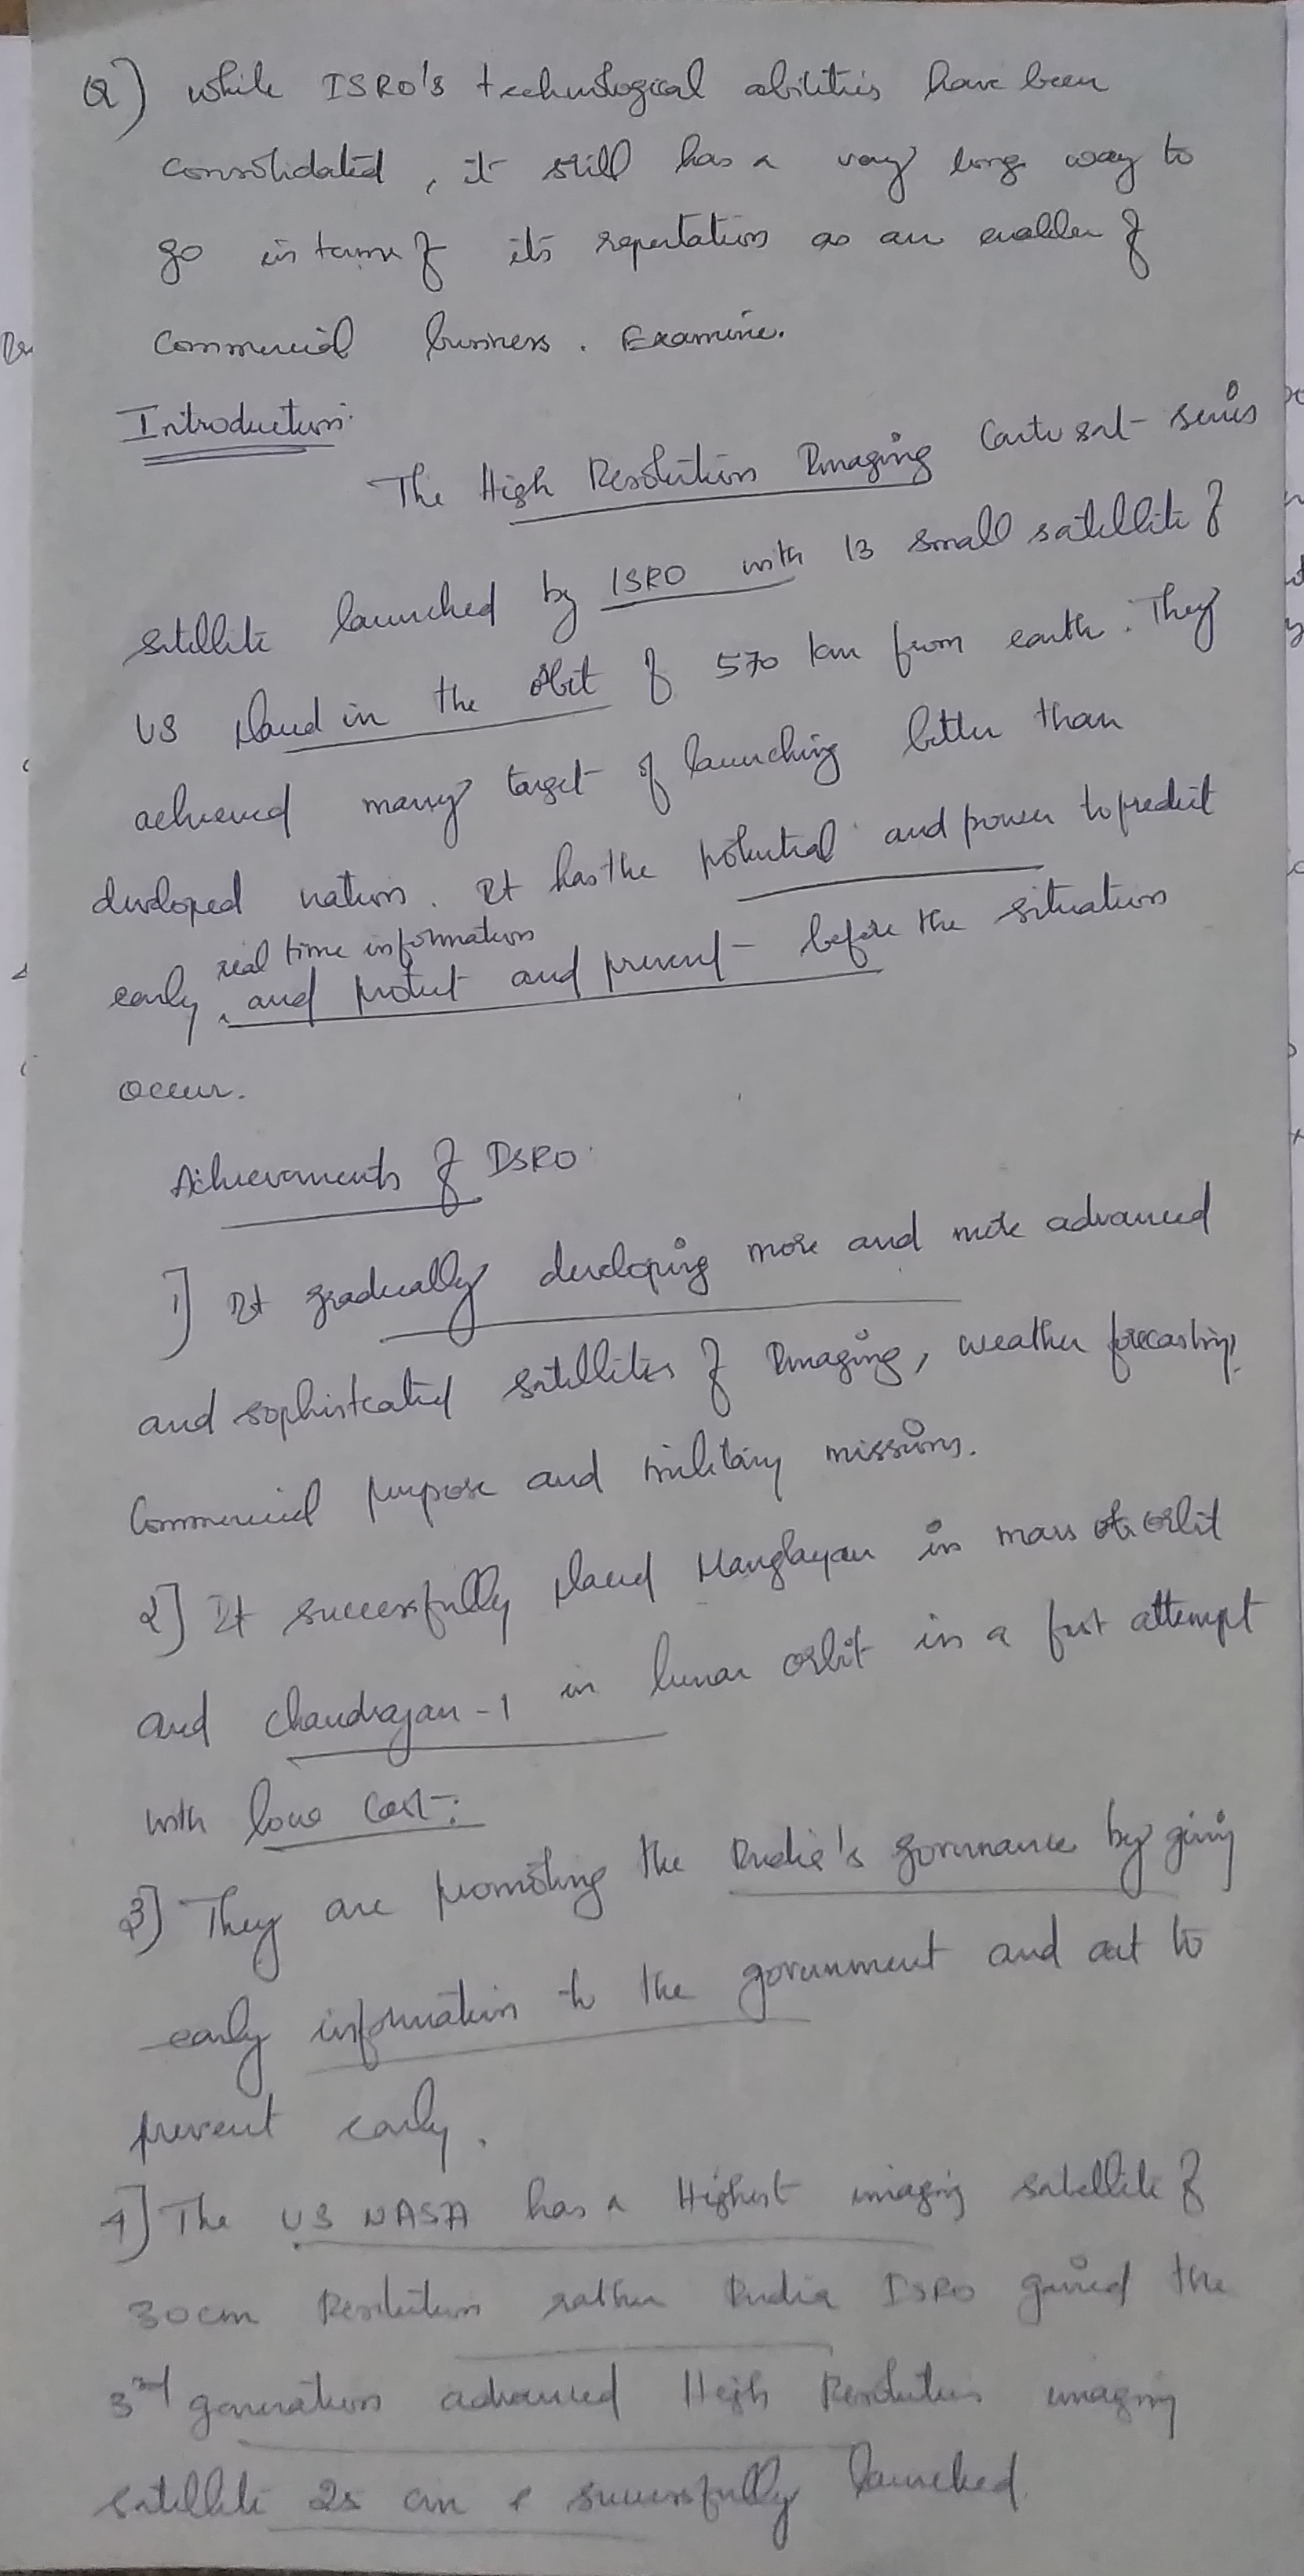 Q) while ISRO's technological abilities have been
consolidated, it still has a very long way to
go in terms of its reputation as an enabler of
commercial business. Examine.
Introduction:
The High Resolution Imaging Cartosat-series
satellite launched by ISRO with 13 small satellite of
US placed in the orbit of 570 km from earth. They
achieved many target of launching better than
developed nation. It has the potential and power to predict
real time information
early, and protect and prevent before the situation
occur.
Achievements of ISRO
1] It gradually developing more and more advanced
and sophisticated satellites of Imaging, weather forecasting,
Commercial purpose and military missions.
2] It successfully placed Manglayan in mars orbit
and chandrayan-1 in lunar orbit in a first attempt
with low cost.
3] They are promoting the India's governance by giving
early information to the government and act to
prevent early.
4] The US NASA has a Highest imaging satellite of
30cm Resolution rather India ISRO gained the
3rd generation advanced High Resolution imaging
satellite 25 cm successfully launched.